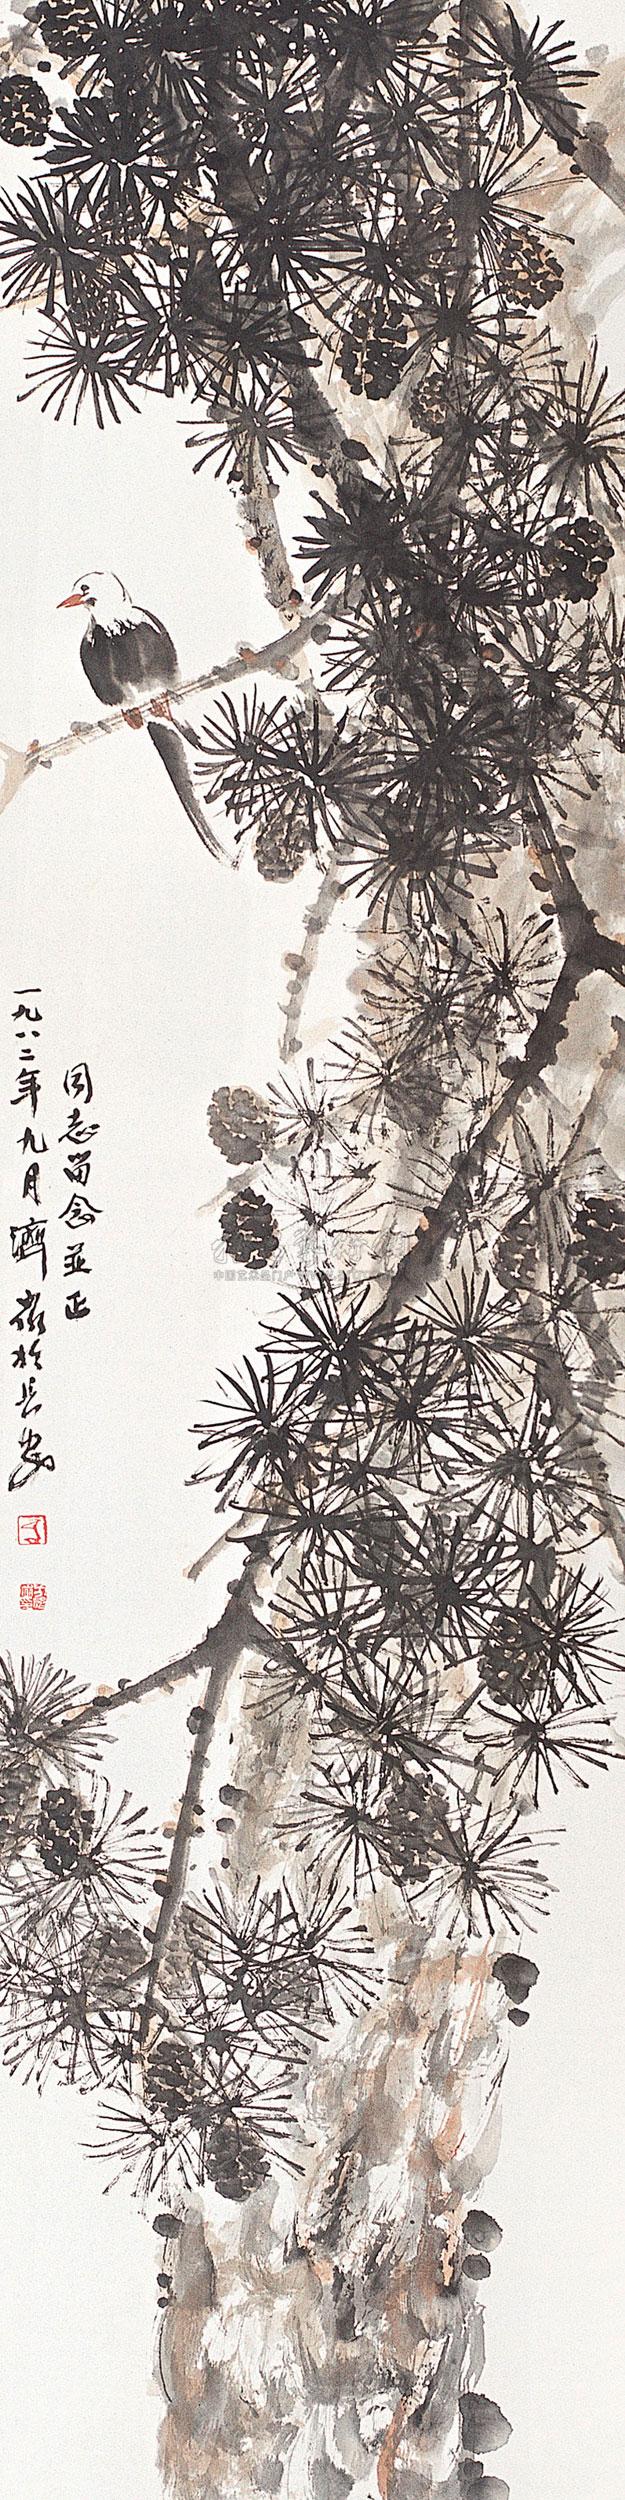 同志留念並正
一九八二年九月濟
於長安
中国艺术品门户